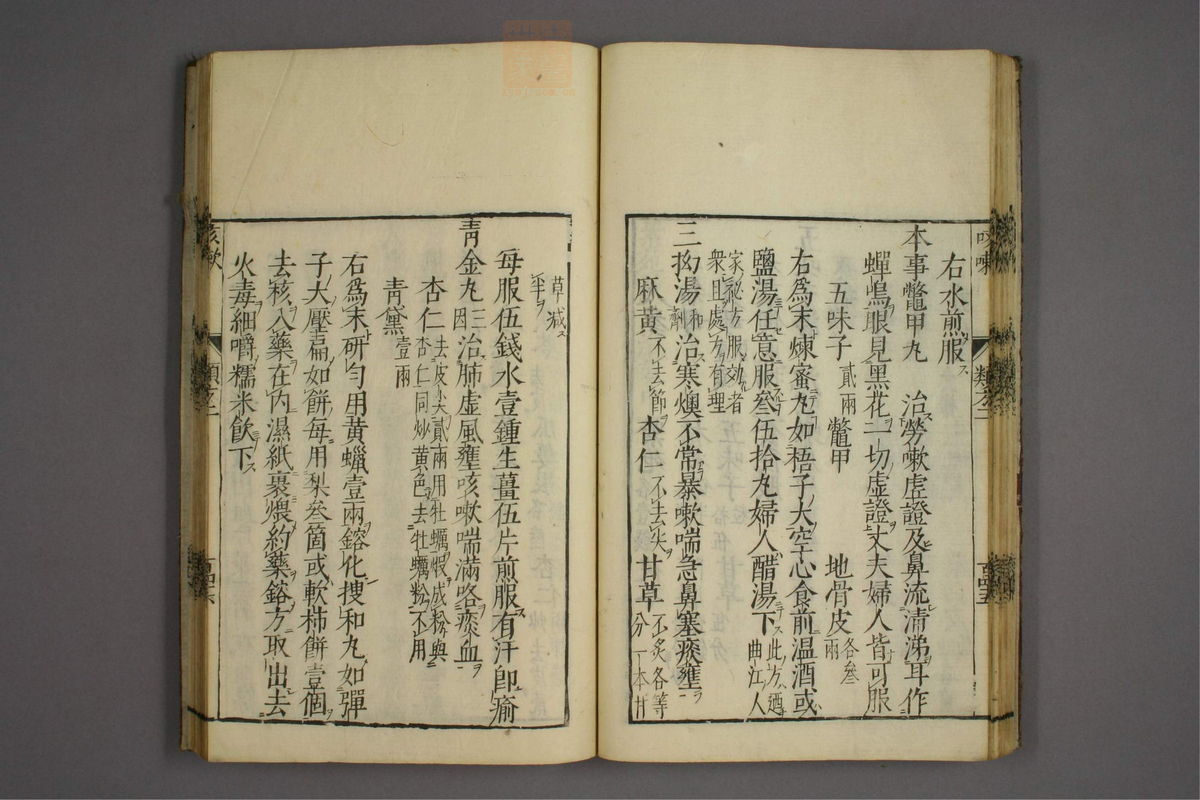 右水煎服
本事鼈甲丸 治勞嗽虛證及鼻流清涕耳作
蟬鳴眼見黑花一切虛證丈夫婦人皆可服
五味子貳兩 鼈甲 地骨皮各叁兩
右爲末煉蜜丸如梧子大空心食前温酒或
鹽湯任意服叁伍拾丸婦人醋湯下此方廼曲江人
家秘方服效者衆且處方有理
三抝湯和劑治寒燠不常暴嗽喘急鼻塞痰壅
麻黄不去節 杏仁不去尖 甘草不炙各等分一本甘
草減半
每服伍錢水壹鍾生薑伍片煎服有汗即瘉
青金丸三因治肺虛風壅咳嗽喘滿咯痰血
杏仁去皮尖貳兩用牡蠣煅成粉與杏仁同炒黄色去牡蠣粉不用
青黛壹兩
右爲末研勻用黄蠟壹兩鎔化搜和丸如彈
子大壓扁如餅每用梨叁箇或軟柿餅壹個
去核入藥在内濕紙裹煨約藥鎔方取出去
火毒細嚼糯米飲下
咳嗽